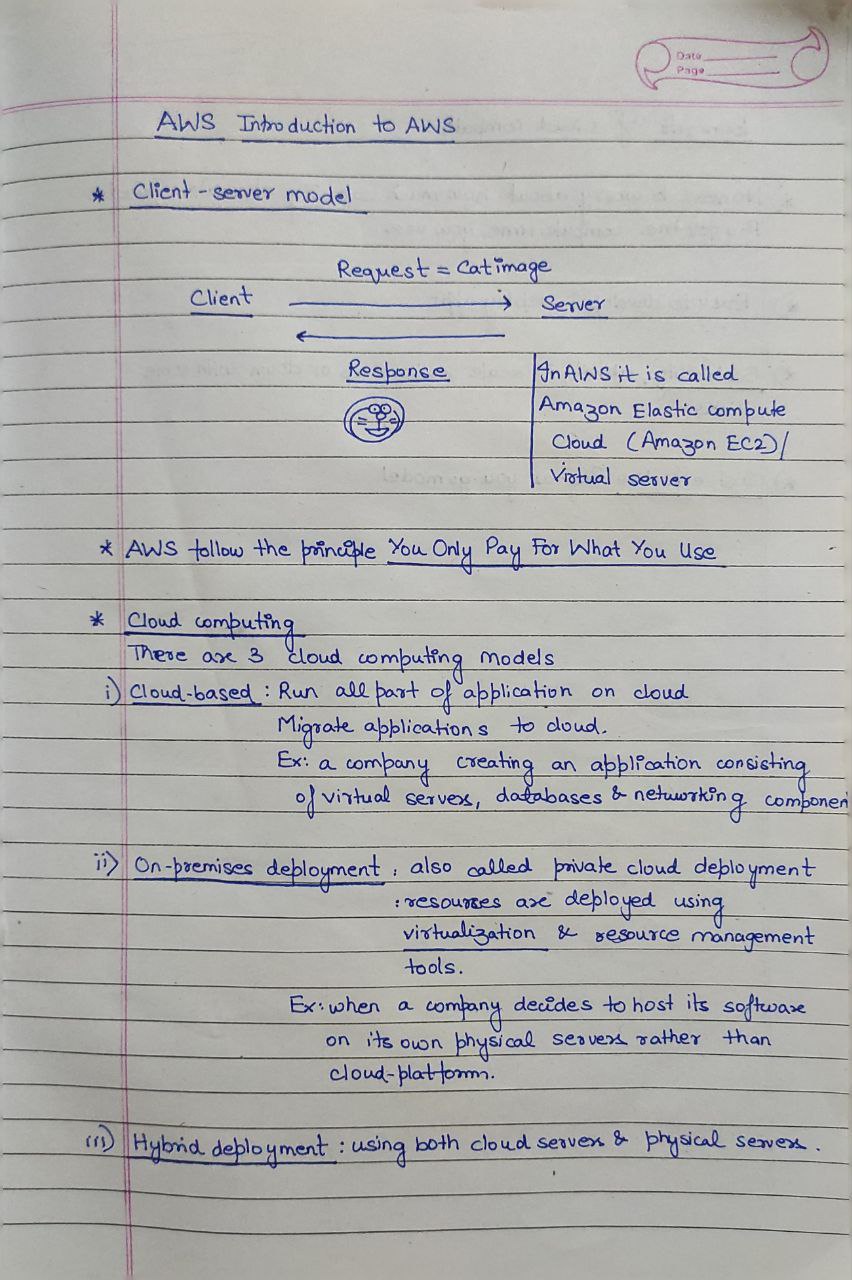 Date
Page
AWS Introduction to AWS
* Client-server model
Request = Cat image
Client
Server
Response
In AWS it is called
Amazon Elastic compute
Cloud (Amazon EC2)/
Virtual server
* AWS follow the principle You Only Pay For What You Use
* Cloud computing
There are 3 cloud computing models
i) Cloud-based : Run all part of application on cloud
Migrate applications to cloud.
Ex: a company creating an application consisting
of virtual servers, databases & networking componen
ii) On-premises deployment : also called private cloud deployment
: resources are deployed using
virtualization & resource management
tools.
Ex: when a company decides to host its software
on its own physical servers rather than
cloud-platform.
iii) Hybrid deployment : using both cloud servers & physical servers.